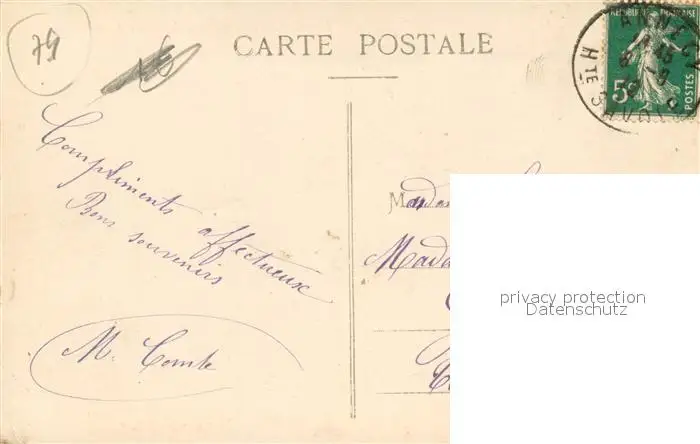 74
CARTE POSTALE
RÉPUBLIQUE FRANÇAISE
5c
POSTES
HTE SAVOIE
Compliments affectueux
Bons souvenirs
M. Comte
Madam
Mada
privacy protection
Datenschutz